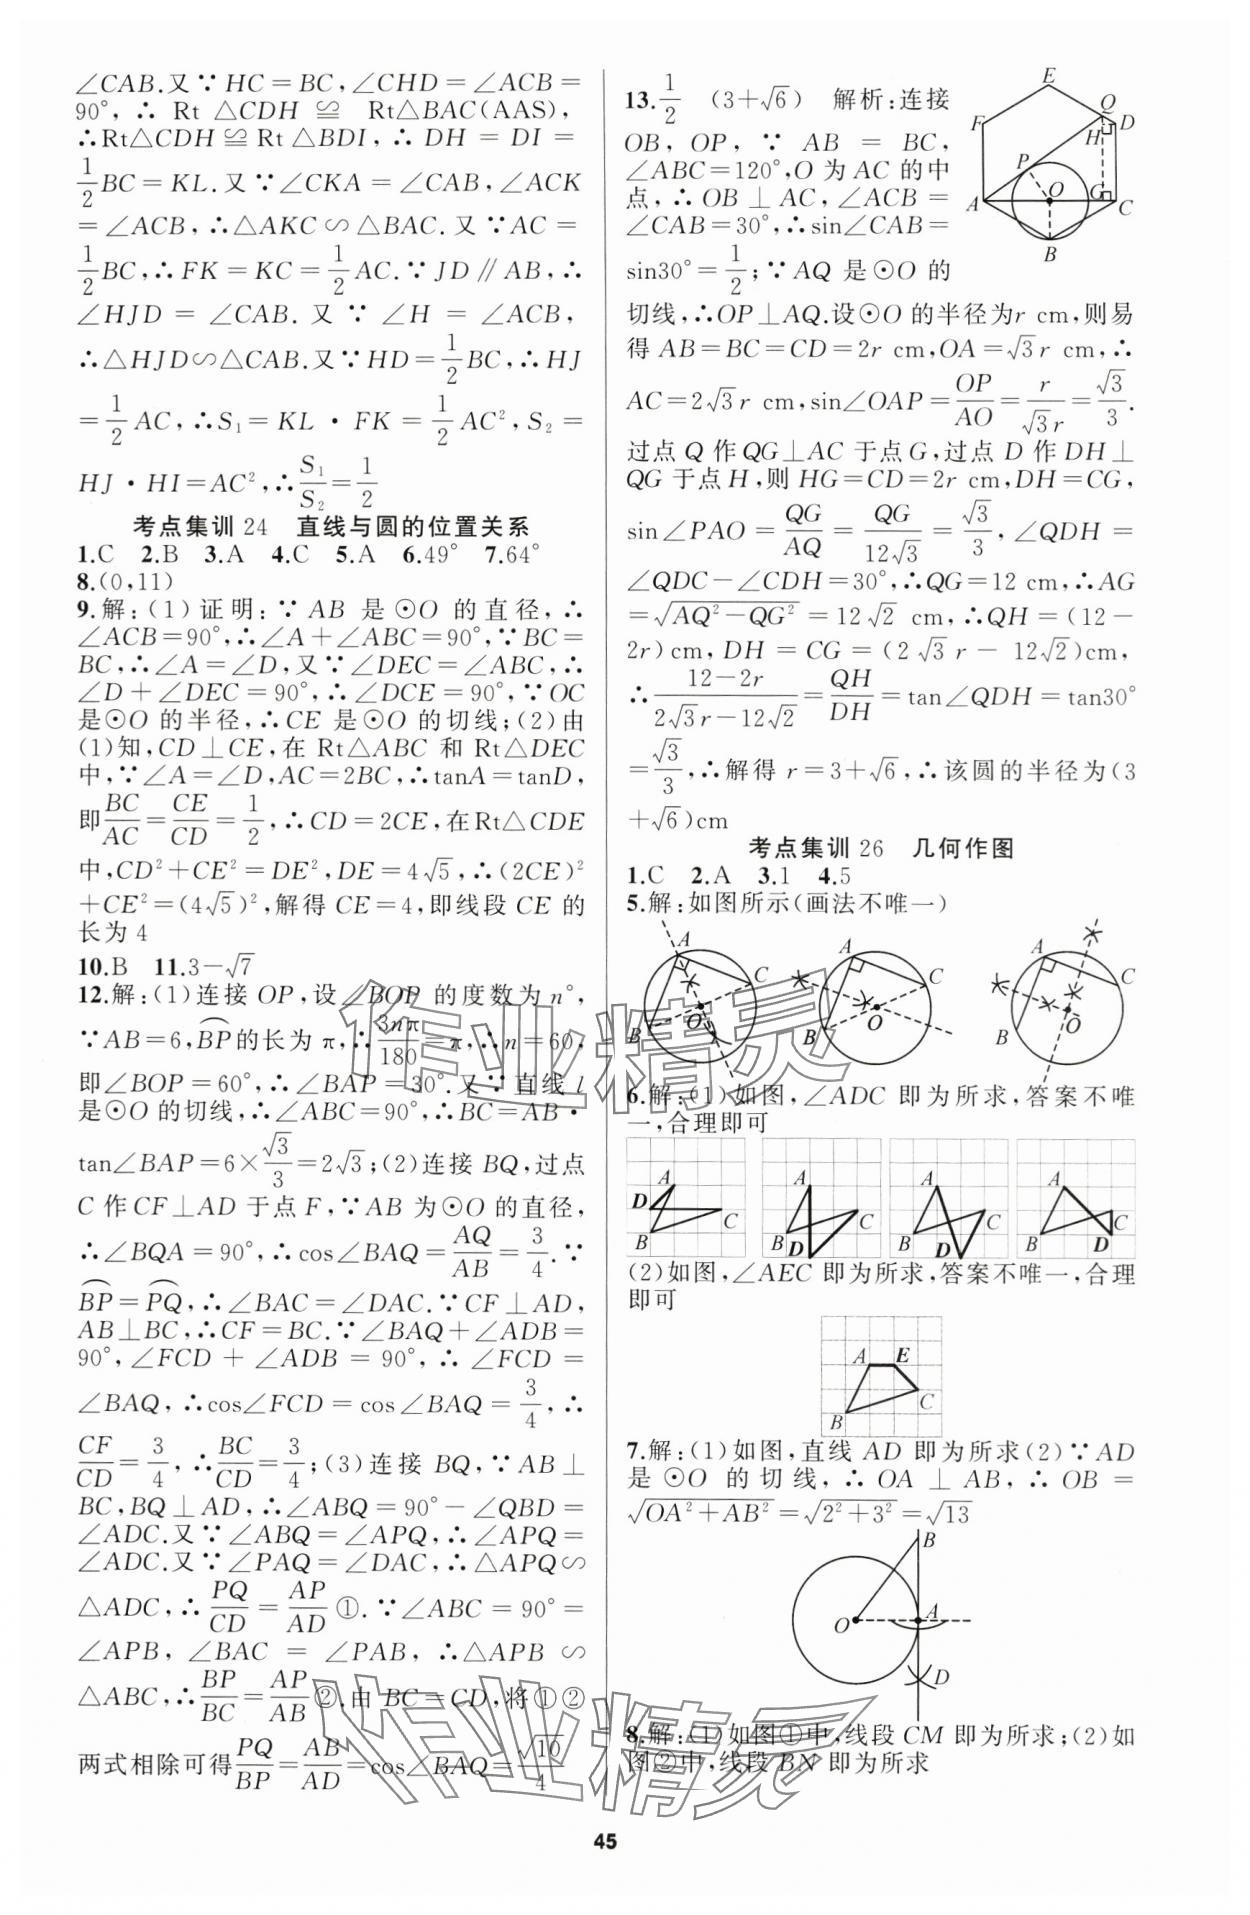 ∠CAB.又∵HC=BC,∠CHD=∠ACB=
90°,∴Rt△CDH≌Rt△BAC(AAS),
∴Rt△CDH≌Rt△BDI,∴DH=DI=
1/2BC=KL.又∵∠CKA=∠CAB,∠ACK
=∠ACB,∴△AKC∽△BAC.又∵AC=
1/2BC,∴FK=KC=1/2AC.∵JD∥AB,∴
∠HJD=∠CAB.又∵∠H=∠ACB,
∴△HJD∽△CAB.又∵HD=1/2BC,∴HJ
=1/2AC,∴S₁=KL·FK=1/2AC²,S₂=
HJ·HI=AC²,∴S₁/S₂=1/2
考点集训24 直线与圆的位置关系
1.C 2.B 3.A 4.C 5.A 6.49° 7.64°
8.(0,11)
9.解:(1)证明:∵AB是⊙O的直径,∴
∠ACB=90°,∴∠A+∠ABC=90°,∵BC=
BC,∴∠A=∠D,又∵∠DEC=∠ABC,∴
∠D+∠DEC=90°,∴∠DCE=90°,∵OC
是⊙O的半径,∴CE是⊙O的切线;(2)由
(1)知,CD⊥CE,在Rt△ABC和Rt△DEC
中,∵∠A=∠D,AC=2BC,∴tanA=tanD,
即BC/AC=CE/CD=1/2,∴CD=2CE,在Rt△CDE
中,CD²+CE²=DE²,DE=4√5,∴(2CE)²
+CE²=(4√5)²,解得CE=4,即线段CE的
长为4
10.B 11.3-√7
12.解:(1)连接OP,设∠BOP的度数为n°,
∵AB=6,⌒BP的长为π,∴3nπ/180=π,∴n=60,
即∠BOP=60°,∴∠BAP=30°.又∵直线l
是⊙O的切线,∴∠ABC=90°,∴BC=AB·
tan∠BAP=6×√3/3=2√3;(2)连接BQ,过点
C作CF⊥AD于点F,∵AB为⊙O的直径,
∴∠BQA=90°,∴cos∠BAQ=AQ/AB=3/4.∵
⌒BP=⌒PQ,∴∠BAC=∠DAC.∵CF⊥AD,
AB⊥BC,∴CF=BC.∵∠BAQ+∠ADB=
90°,∠FCD+∠ADB=90°,∴∠FCD=
∠BAQ,∴cos∠FCD=cos∠BAQ=3/4,∴
CF/CD=3/4,∴BC/CD=3/4;(3)连接BQ,∵AB⊥
BC,BQ⊥AD,∴∠ABQ=90°-∠QBD=
∠ADC.又∵∠ABQ=∠APQ,∴∠APQ=
∠ADC.又∵∠PAQ=∠DAC,∴△APQ∽
△ADC,∴PQ/CD=AP/AD①.∵∠ABC=90°=
∠APB,∠BAC=∠PAB,∴△APB∽
△ABC,∴BP/BC=AP/AB②.由BC=CD,将①②
两式相除可得PQ/BP=AB/AD=cos∠BAQ=√10/4
13.1/2 (3+√6) 解析:连接
OB,OP,∵AB=BC,
∠ABC=120°,O为AC的中
点,∴OB⊥AC,∠ACB=
∠CAB=30°,∴sin∠CAB=
sin30°=1/2;∵AQ是⊙O的
切线,∴OP⊥AQ.设⊙O的半径为r cm,则易
得AB=BC=CD=2r cm,OA=√3r cm,∴
AC=2√3r cm,sin∠OAP=OP/AO=r/√3r=√3/3.
过点Q作QG⊥AC于点G,过点D作DH⊥
QG于点H,则HG=CD=2r cm,DH=CG,
sin∠PAO=QG/AQ=QG/12√3=√3/3,∠QDH=
∠QDC-∠CDH=30°,∴QG=12 cm,∴AG
=√(AQ²-QG²)=12√2 cm,∴QH=(12-
2r)cm,DH=CG=(2√3r-12√2)cm,
∴(12-2r)/(2√3r-12√2)=QH/DH=tan∠QDH=tan30°
=√3/3,∴解得r=3+√6,∴该圆的半径为(3
+√6)cm
E
F
Q
D
H
P
A
O
G
C
B
考点集训26 几何作图
1.C 2.A 3.1 4.5
5.解:如图所示(画法不唯一)
A
C
B
O
A
C
B
O
A
C
B
O
6.解:(1)如图,∠ADC即为所求,答案不唯
一,合理即可
A
D
C
B
A
C
B
D
A
C
B
D
A
C
B
D
(2)如图,∠AEC即为所求,答案不唯一,合理
即可
A
E
C
B
7.解:(1)如图,直线AD即为所求(2)∵AD
是⊙O的切线,∴OA⊥AB,∴OB=
√(OA²+AB²)=√(2²+3²)=√13
B
O
A
D
8.解:(1)如图①中,线段CM即为所求;(2)如
图②中,线段BN即为所求
作业精灵
作业精灵
45